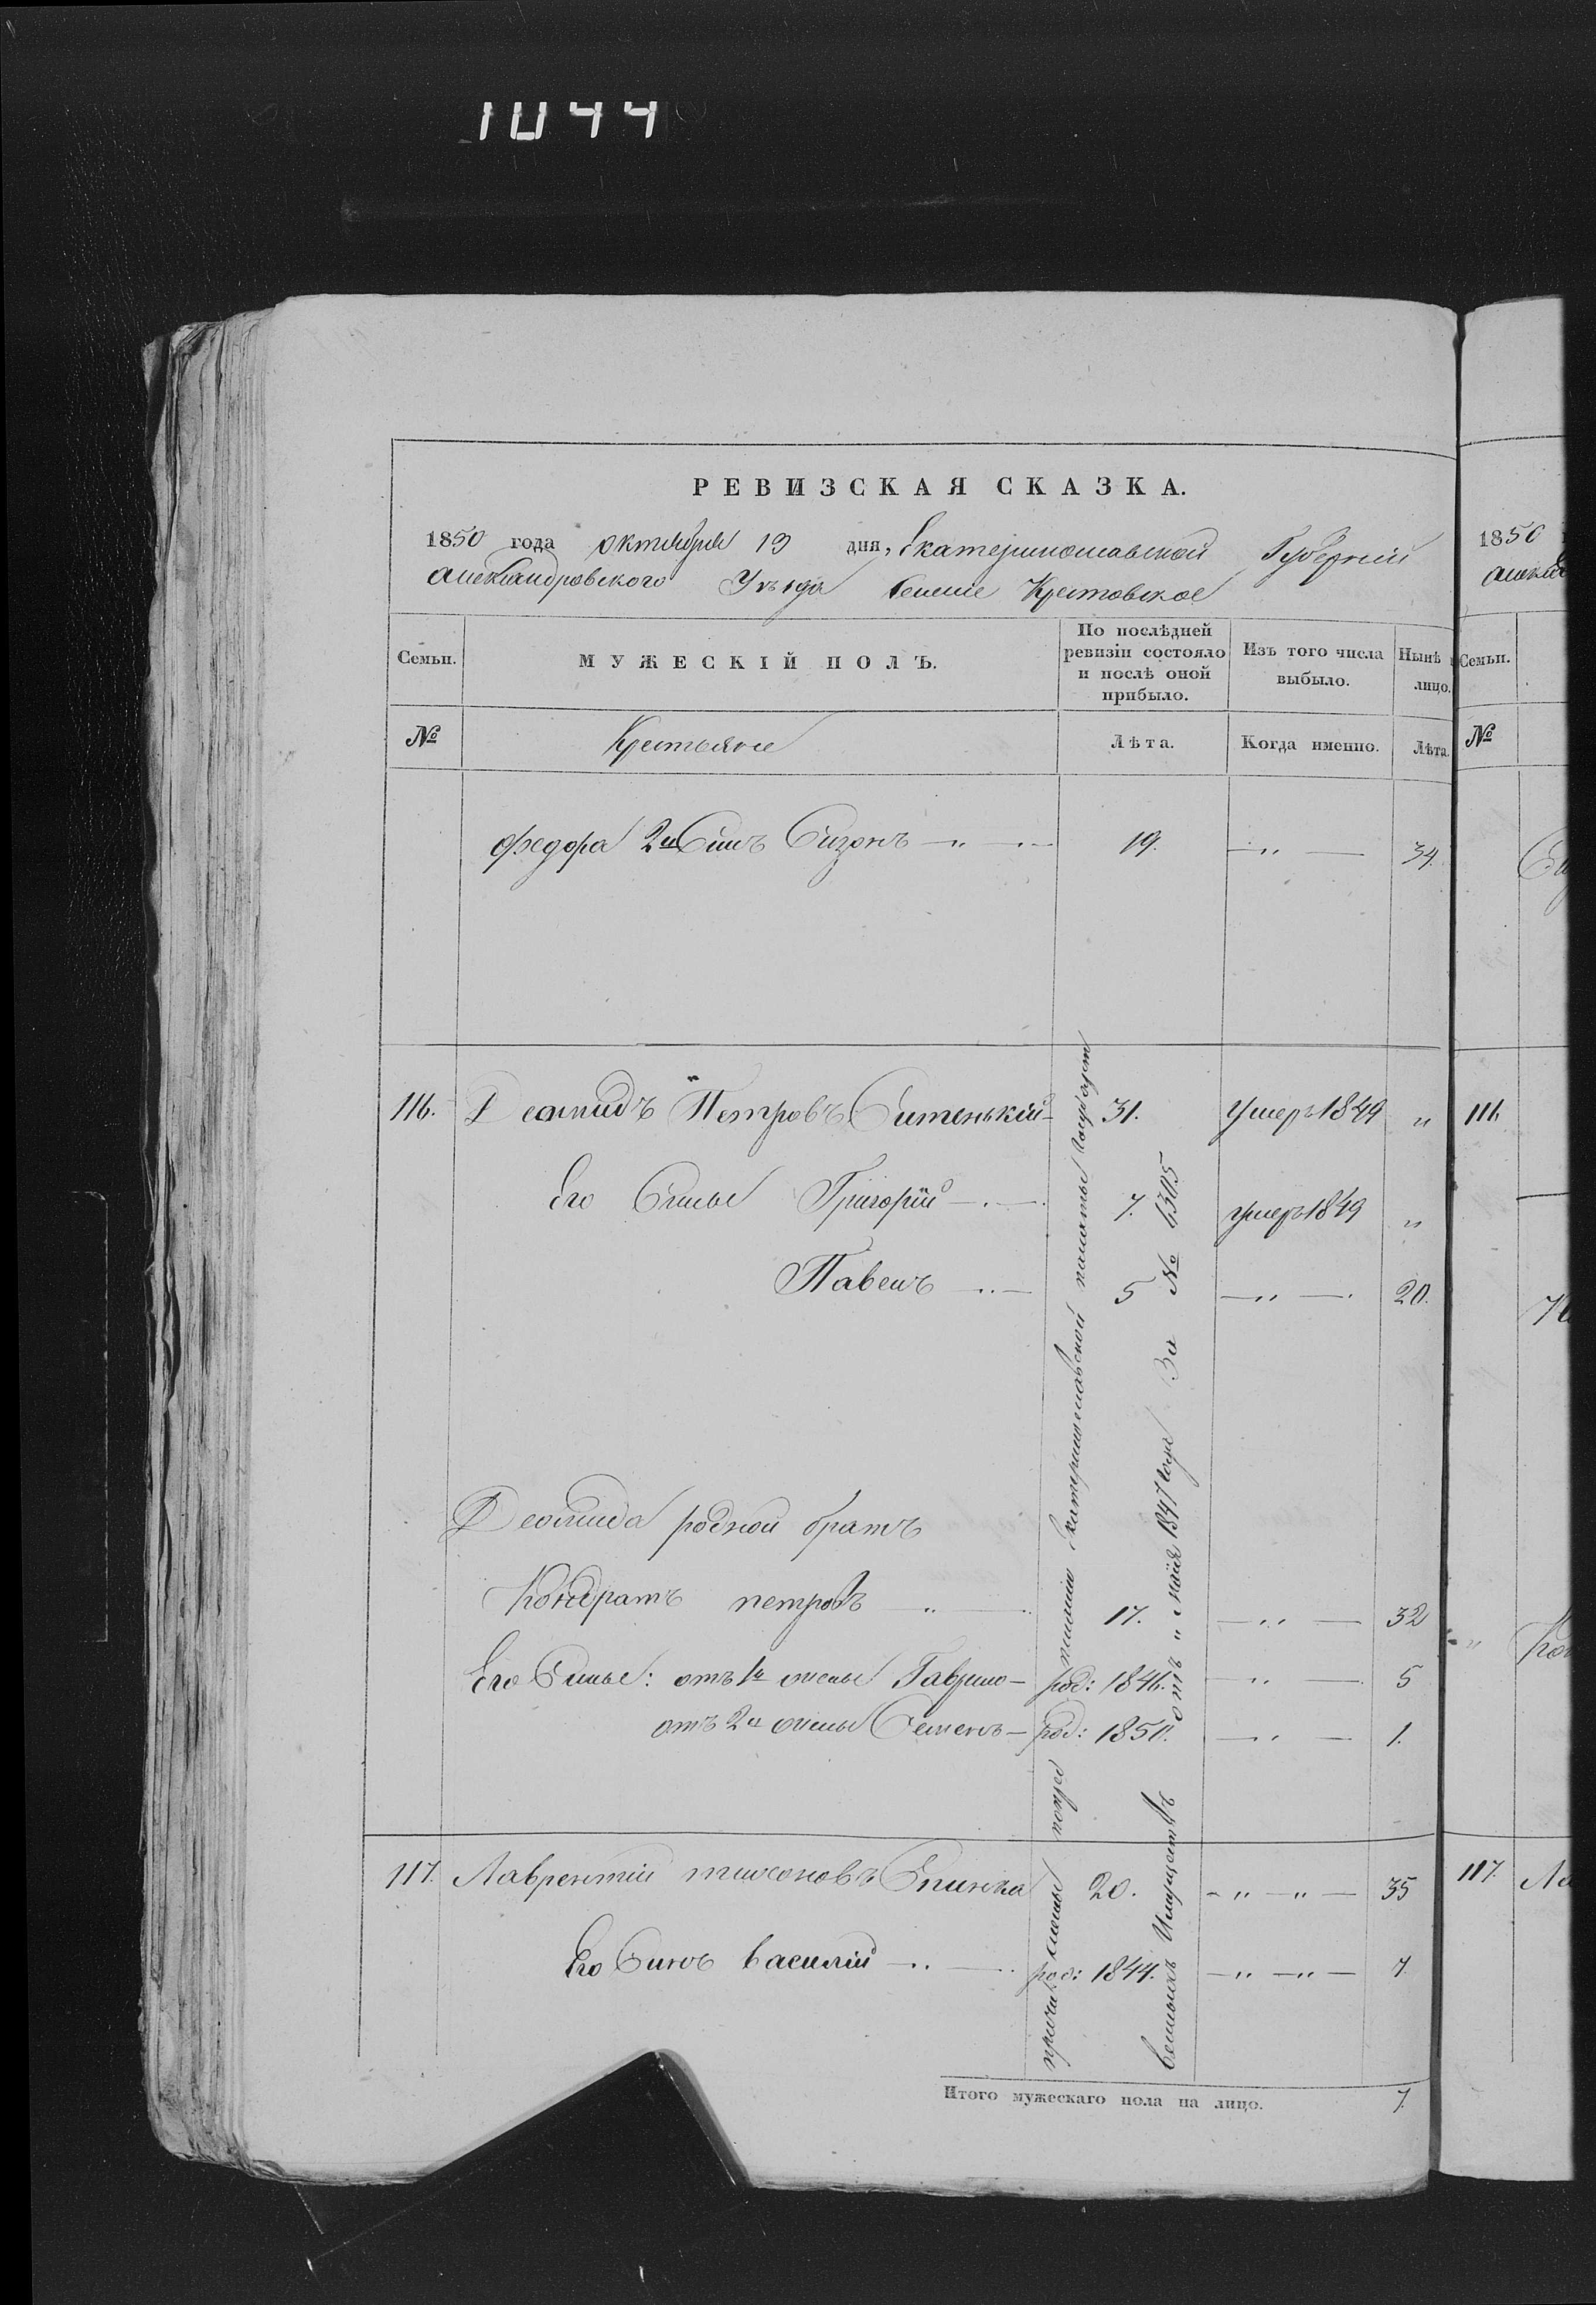 1044
РЕВИЗСКАЯ СКАЗКА.
1850 года октября 19 дня, Екатеринославской Губерніи
Александровского Уезда Селеніе Крестовское
Семьи.
МУЖЕСКІЙ ПОЛЪ.
По послѣдней ревизіи состояло и послѣ оной прибыло.
Изъ того числа выбыло.
Нынѣ лицо.
№
Крестьяне
Лѣта.
Когда именно.
Лѣта.
Федора 2й Синъ Сизонъ — „ — 19. — „ — 34.
116. Деомидъ Петровъ Ситенькій — 31. умеръ 1849 „
Его Сины Григорій — . — 7. умеръ 1849 „
Павелъ — „ — 5 — „ — 20.
Деомида родной братъ
Кондратъ петровъ „ — 17. — „ — 32
Его Сины: отъ 1й жены Гаврило — род: 1846. — „ — 5
отъ 2й жены Семенъ — род: 1850. — „ — 1.
117. Лаврентій тихоновъ 20. — „ — „ — 35
Его Синъ Василій — „ — род: 1844. — „ — „ — 7
Екатеринославской палаты Государст
венныхъ Имуществъ отъ „ мая 1847 года За № 4305
Итого мужескаго пола на лицо. 7.
1850
Семьи.
№
116.
117. Ла